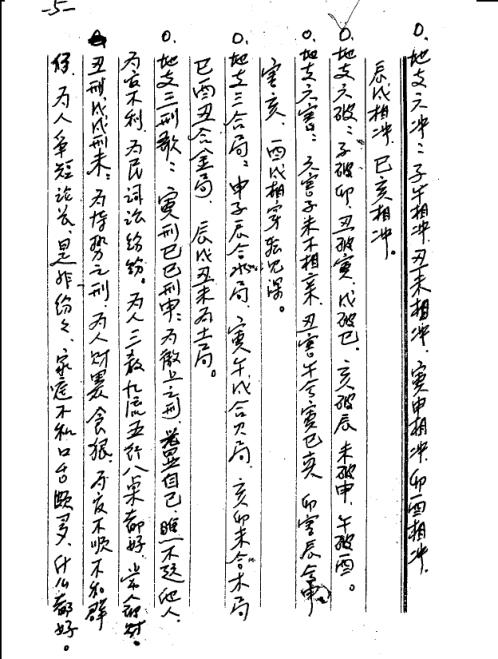 -5-
0.地支六冲：子午相冲.丑未相冲.寅申相冲.卯酉相冲.
辰戌相冲.巳亥相冲。
0.地支六破：子破卯.丑破寅.戌破巳.亥破辰.未破申.午破酉。
0.地支六害：六害子未不相亲.丑害午兮寅巳亥.卯害辰兮申
害亥.酉戌相穿
0.地支三合局：申子辰合水局.寅午戌合火局.亥卯未合木局
巳酉丑合金局.辰戌丑未为土局。
0.地支三刑歌：寅刑巳巳刑申：为傲上之刑.自己.瞧不起他人.
为官不利.为民词讼纷纷。为人三教九流五行八桌都好.
丑刑戌戌刑未：为恃势之刑.为人财贪狠.为官不顺不和群
为人争短论长.是非纷々.家庭不和口舌颇多.什么都好。